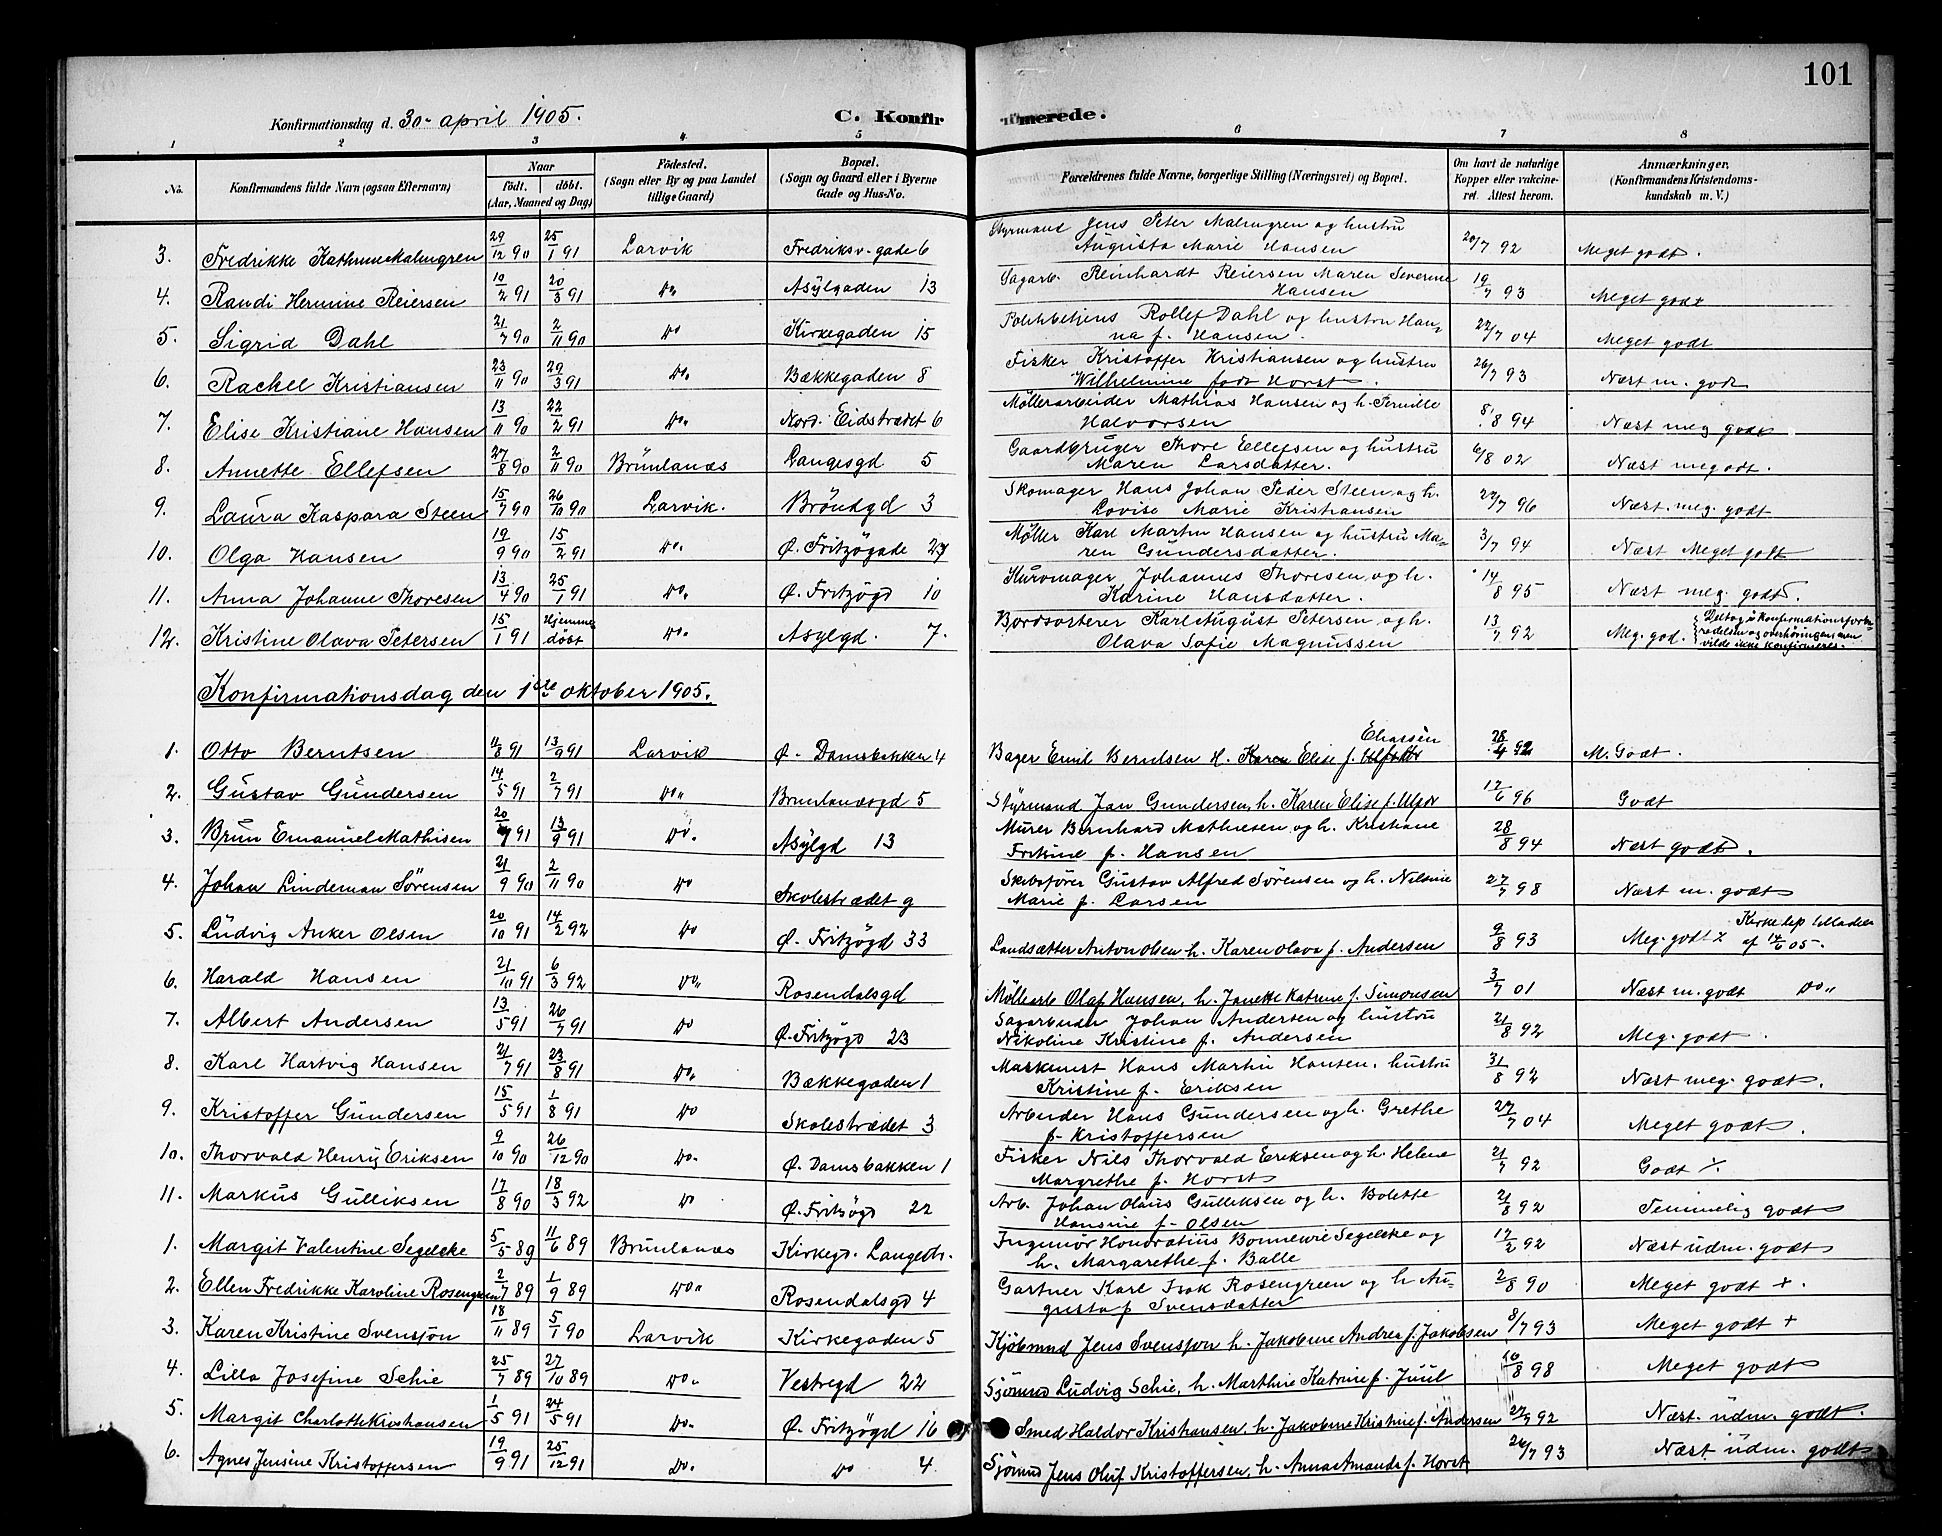 101
Konfirmationsdag d. 30- april 1905. C. Konfirmerede.
1 2 3 4 5 6 7 8
No. Konfirmandens fulde Navn (ogsaa Efternavn) Naar født. døbt. (Aar, Maaned og Dag) Fødested. (Sogn eller By og paa Landet tillige Gaard) Bopæl. (Sogn og Gaard eller i Byerne Gade og Hus-No. Forældrenes fulde Navne, borgerlige Stilling (Næringsvei) og Bopæl. Om havt de naturlige Kopper eller vakcineret. Attest herom. Anmærkninger. (Konfirmandens Kristendomskundskab m. V.)
3. Fredrikke Kathrine Malmgren 29/12 90 25/1 91 Larvik Fredriksv. gade 6 Styrmand Jens Peter Malmgren og hustru Augusta Marie Hansen 20/7 92 Meget godt.
4. Randi Hermine Reiersen 10/2 91 20/3 91 Do Asylgaden 13 Sagarb. Reinhardt Reiersen Maren Severine Hansen 19/7 93 Meget godt
5. Sigrid Dahl 21/7 90 2/11 90 Do Kirkegaden 15 Politibetjent Rollef Dahl og hustru Hanna f. Hansen. 22/7 04 Meget godt
6. Rachel Kristiansen 23/11 90 29/3 91 Do. Bækkegaden 8 Fisker Kristoffer Kristiansen og hustru Wilhelmine født Horst. 26/7 93 Næst m. godt
7. Elise Kristiane Hansen 13/11 90 22/2 91 Do. Nord. Eidstrædet 6 Møllerarbeider Mathias Hansen og h. Pernille Halvorsen 8/8 94 Næst meg godt
8. Annette Ellefsen 27/8 90 2/11 90 Brunlanæs Langesgd 5 Gaardbruger Thore Ellefsen og hustru Maren Larsdatter. 6/8 02 Næst meg odt.
9. Laura Kaspara Steen 15/7 90 26/10 90 Larvik. Bröndgd 3 Skomager Hans Johan Peder Steen og h. Lovise Marie Kristiansen 27/7 96 Næst. meg. godt
10. Olga Hansen 19/9 90 15/2 91 Do. Ø. Fritzøgade 27 Møller Karl Martin Hansen og hustru Maren Gundersdatter. 3/7 94 Næst Meget godt
11. Anna Johanne Thoresen 13/4 90 25/1 91 Do. Ø. Fritzøgd 10 Kurvmager Johannes Thoresen og h. Karine Hansdatter. 14/8 95 Næst meg. godt.
12. Kristine Olava Petersen 15/1 91 Hjemmedøbt Do. Asylgd. 7. Bordsorterer Karl August Petersen og h. Olava Sofie Magnussen 13/7 92 Meg. god. Deltog i Konfirmationsforberedelsen og overhøringen men vilde ikke konfirmeres.
Konfirmationsdag den 1ste oktober 1905.
1. Otto Berntsen 11/8 91 13/9 91 Larvik Ø. Damsbakken 4 Bager Emil Berntsen H. Karen Elise f. Eliassen 28/4 92 M. Godt.
2. Gustav Gundersen 14/5 91 2/7 91 Do. Brunlanæsgd 5 Styrmand Jan Gundersen, h. Karen Elise f. Ulfør 17/6 96 Godt
3. Brun Emanuel Mathisen 20/7 91 13/9 91 Do. Asylgd 13 Murer Bernhard Mathiesen og h. Kristiane Fritzine f. Hansen 28/8 94 Næst godt.
4. Johan Lindeman Sörensen 21/9 90 2/11 90 Do Skolestrædet 9 Skibsfører Gustav Alfred Sørensen og h. Nilsine Marie f. Larsen 27/7 98 Næst m. godt
5. Ludvig Anker Olsen 20/10 91 14/2 92 Do Ø. Fritzögd 33 Landsætter Anton Olsen h. Karen Olava f. Andersen 9/8 93 Meg. godt x Kirkedep tilladelse af 14/6 05.
6. Harald Hansen 21/10 91 6/3 92 Do. Rosendalsgd Møllearb Olaf Hansen, h. Janette Katrine f. Simonsen 3/7 01 Næst m. godt Do.
7. Albert Andersen 13/5 91 26/7 91 Do Ø. Fritzøgd 23 Sagarbeider Johan Andersen og hustru Nikoline Kristine f. Andersen 21/8 92 Meg. godt
8. Karl Hartvig Hansen 21/7 91 23/8 91 Do. Bækkegaden 1 Maskinist Hans Martin Hansen, hustru Kristine f. Eriksen 31/8 92 Næst meg. godt.
9. Kristoffer Gundersen 15/5 91 1/8 91 Do Skolestrædet 3 Arbeider Hans Gundersen og h. Grethe f. Kristoffersen 27/7 04 Meget godt.
10. Thorvald Henry Eriksen 9/10 90 26/12 90 Do. Ø. Damsbakken 1 Fisker Nils Thorvald Eriksen og h. Helene Margrethe f. Horst 21/7 92 Godt x.
11. Markus Gulliksen 17/8 90 18/3 92 Do Ø. Fritzøgd 22 Arb. Johan Olaus Gulliksen og h. Bolette Hansine f. Olsen 21/8 92 Temmelig godt
1. Margit Valentine Segelcke 5/5 89 11/6 89 Brunlanæs Kirkegd. Langestr. Ingeniør Honoratius Bonnevie Segelcke og h. Margarethe f. Balle 17/2 92 Næst udm. godt
2. Ellen Fredrikke Karoline Rosengreen 2/7 89 1/9 89 Do. Rosendalsgd 4 Gartner Karl Isak Rosengreen og h Augusta f Svensdatter 2/8 90 Meget godt +.
3. Karen Kristine Svensson 18/11 89 5/1 90 Larvik Kirkegaden 5 Kjøbmnd Jens Svensson h. Jakobine Andrea f. Jakobsen 8/7 93 Meget godt +
4. Lilla Josefine Schie 25/7 89 27/10 89 Do. Vestregd 22 Sjømnd Ludvig Schie, h. Marthine Katrine f. Juul 16/8 98 Meget godt
5. Margit Charlotte Kristiansen 1/5 91 24/5 91 Do. Ø. Fritzøgd 16 Smed Haldor Kristiansen, h. Jakobine Kristine f. Andersen 27/7 92 Næst. udm. godt.
6. Agnes Jensine Kristoffersen 19/9 91 25/12 91 Do. Do 4. Sjømnd Jens Oluf Kristoffersen, h. Anna Amanda f. Horst 26/7 93 Næst udm. godt